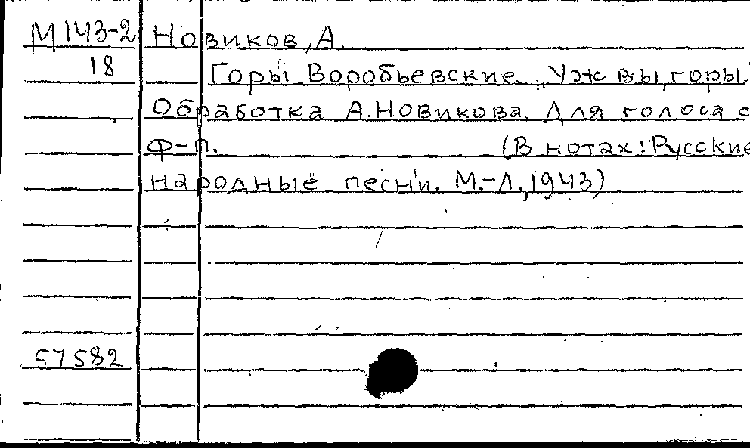 М143-2 Новиков, А.
18 Горы Воробьевские. "Уж вы, горы"
Обработка А. Новикова. Для голоса с
ф-п. (В нотах: Русские
народные песни. М.-Л., 1943)
57582